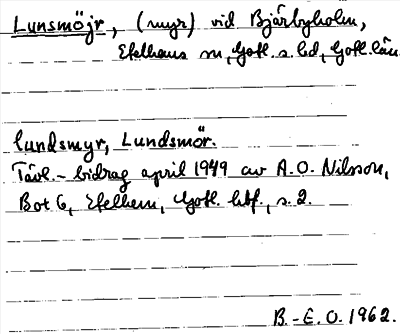 Lunsmöjr, (myr) vid Bjärbyholm,
Etelhems sn, Gotl. s. hd, Gotl. län
Lundsmyr, Lundsmör.
Tävl.-bidrag april 1949 av A.O. Nilsson,
Bot 6, Etelhem, Gotl. hbf., s. 2.
B.-E.O. 1962.